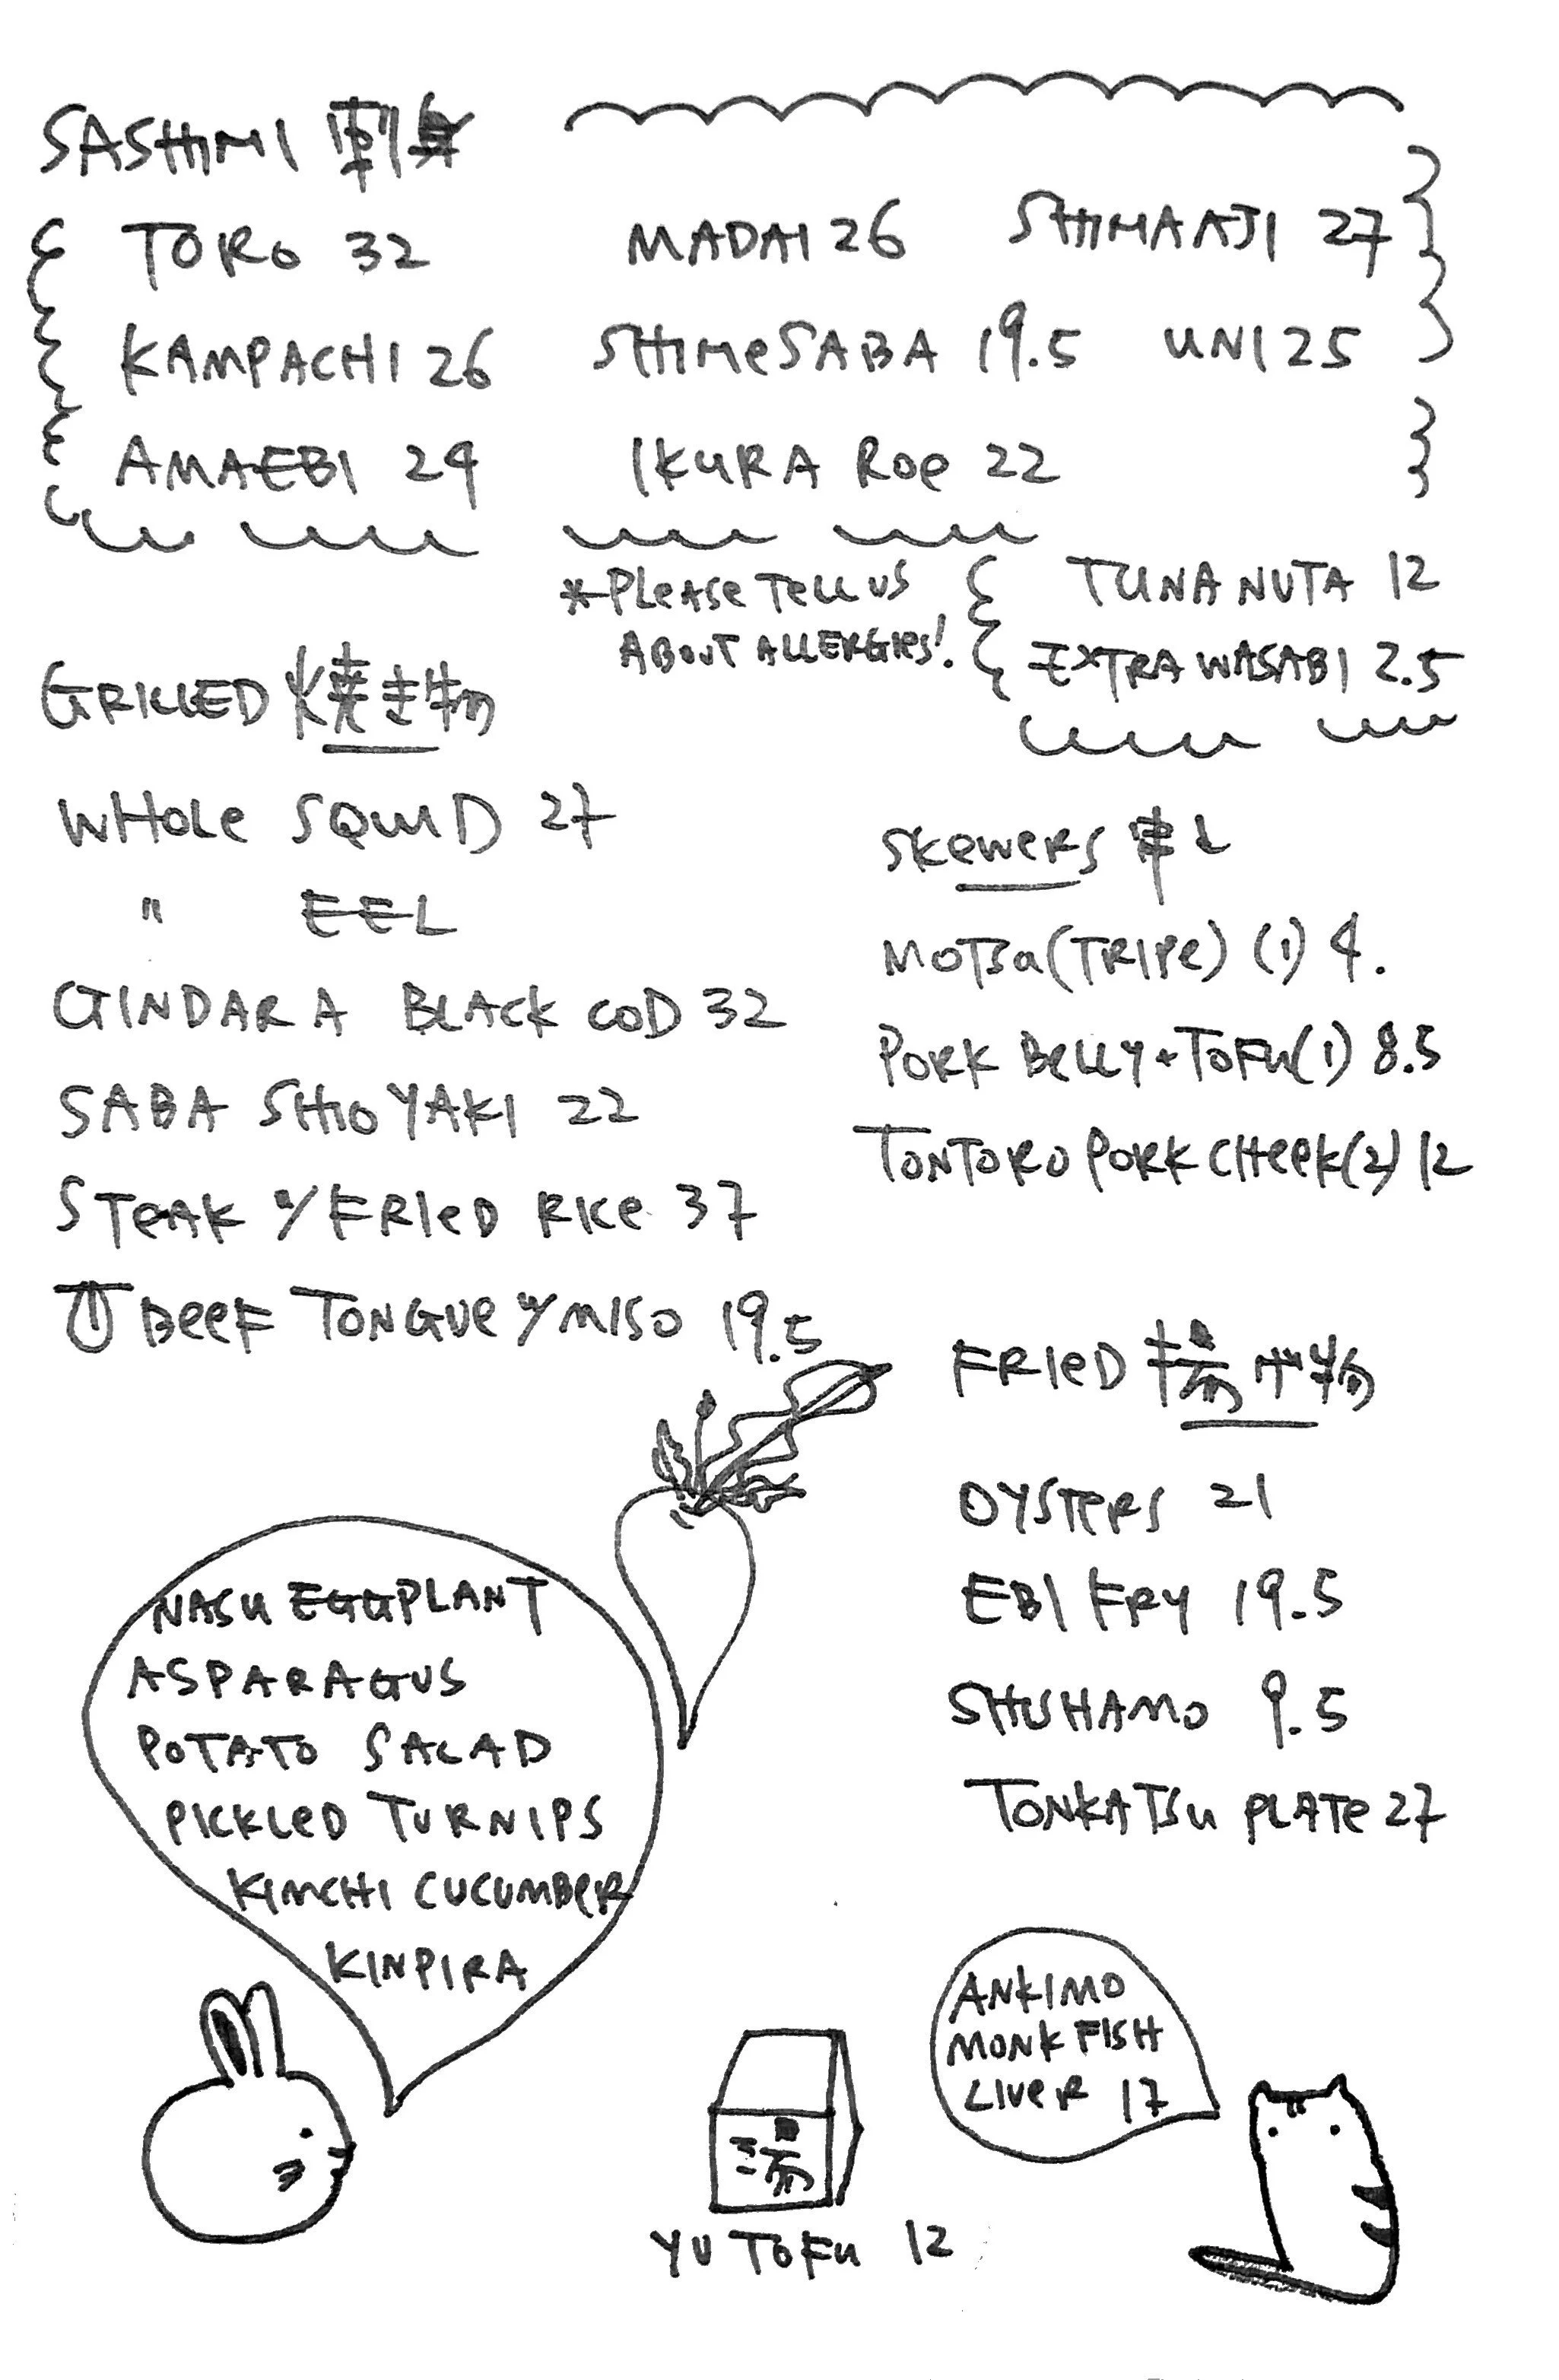 SASHIMI 刺身
TORO 32 MADAI 26 SHIMAAJI 27
KAMPACHI 26 SHIMeSABA 19.5 UNI 25
AMAEBI 29 IKURA Roe 22
*PLEASe TeLL US
ABOUT ALLERGIes!
TUNA NUTA 12
EXTRA WASABI 2.5
GRILLED 焼き物
WHOLe SQUID 27
" EEL
GINDARA BLACK COD 32
SABA SHIOYAKI 22
STeAK w/FRIeD RICe 37
BeeF TONGUe w/MISO 19.5
SKeweRS 串し
MOTSu(TRIPe) (1) 4.
PORK BeLLY+TOFu(1) 8.5
TONTORO PORK CHeeK(2) 12
FRIeD 揚げ物
OYSTeRS 21
EBI FRY 19.5
SHISHAMO 9.5
TONKATSu PLATe 27
NASu EGGPLANT
ASPARAGUS
POTATO SALAD
PICKLeD TURNIPS
KIMCHI CUCUMBeR
KINPIRA
ANKIMO
MONKFISH
LIVeR 17
湯
YU TOFu 12